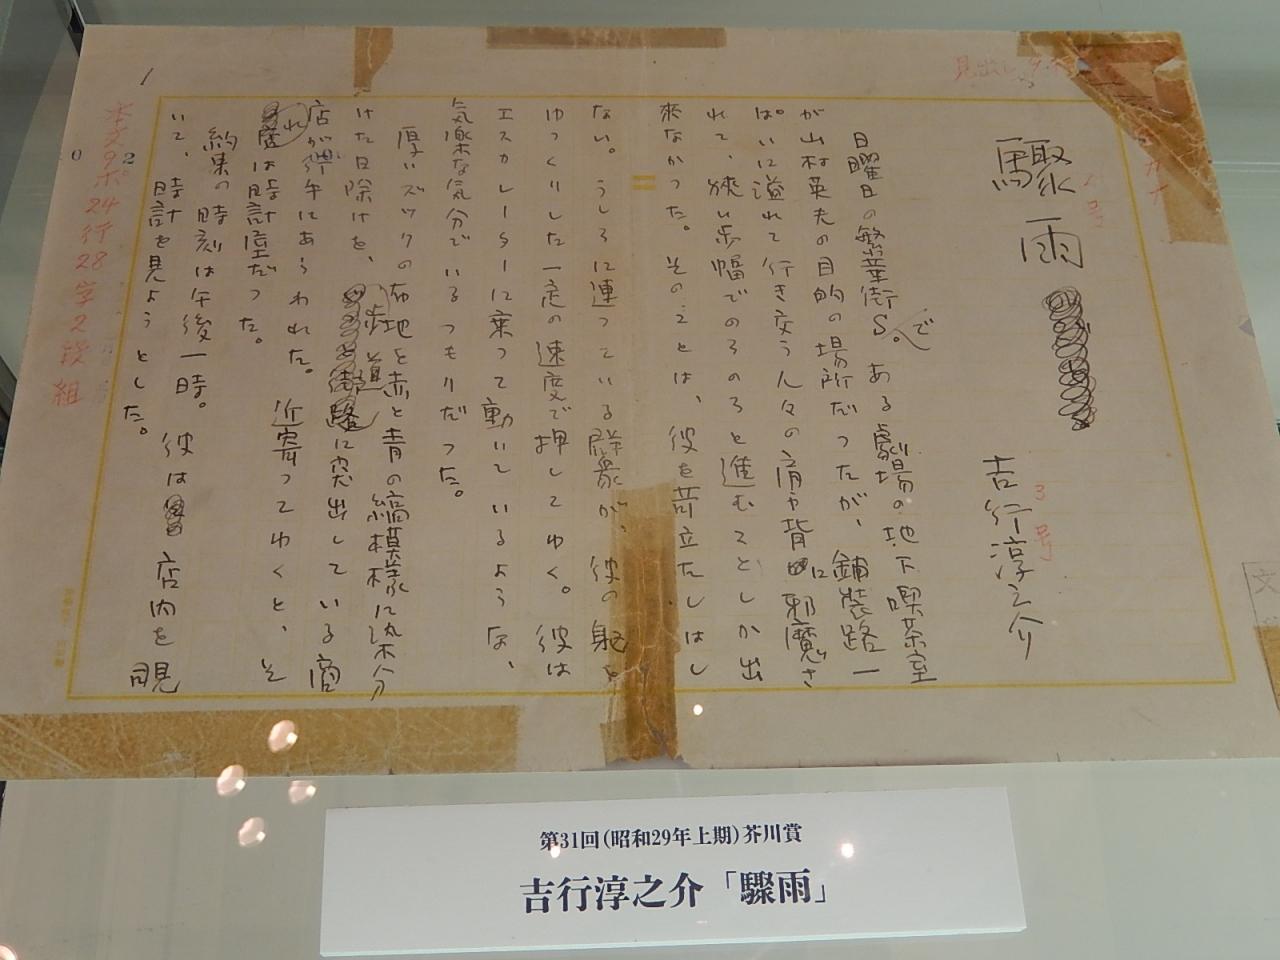 驟雨
吉行淳之介
3号
日曜日の繁華街S。ある劇場の地下喫茶室
が山村英夫の目的の場所だったが、舗装路一
ぱいに溢れて行き交う人々の肩や背に邪魔さ
れて、狭い歩幅でのろのろと進むことしか出
来なかった。そのことは、彼を苛立たしはし
ない。うしろに連っている群衆が、彼の躯を
ゆっくりした一定の速度で押してゆく。彼は
エスカレーターに乗って動いているような、
気楽な気分でいるつもりだった。
厚いズックの布地を赤と青の縞模様に染分
けた日除けを、歩道に突出している商
店が彼の
にあらわれた。近寄ってゆくと、そ
れは時計屋だった。
約束の時刻は午後一時。彼は店内を覗
いて、時計を見ようとした。
本文9ポ24行28字2段組
1
第31回(昭和29年上期)芥川賞
吉行淳之介「驟雨」